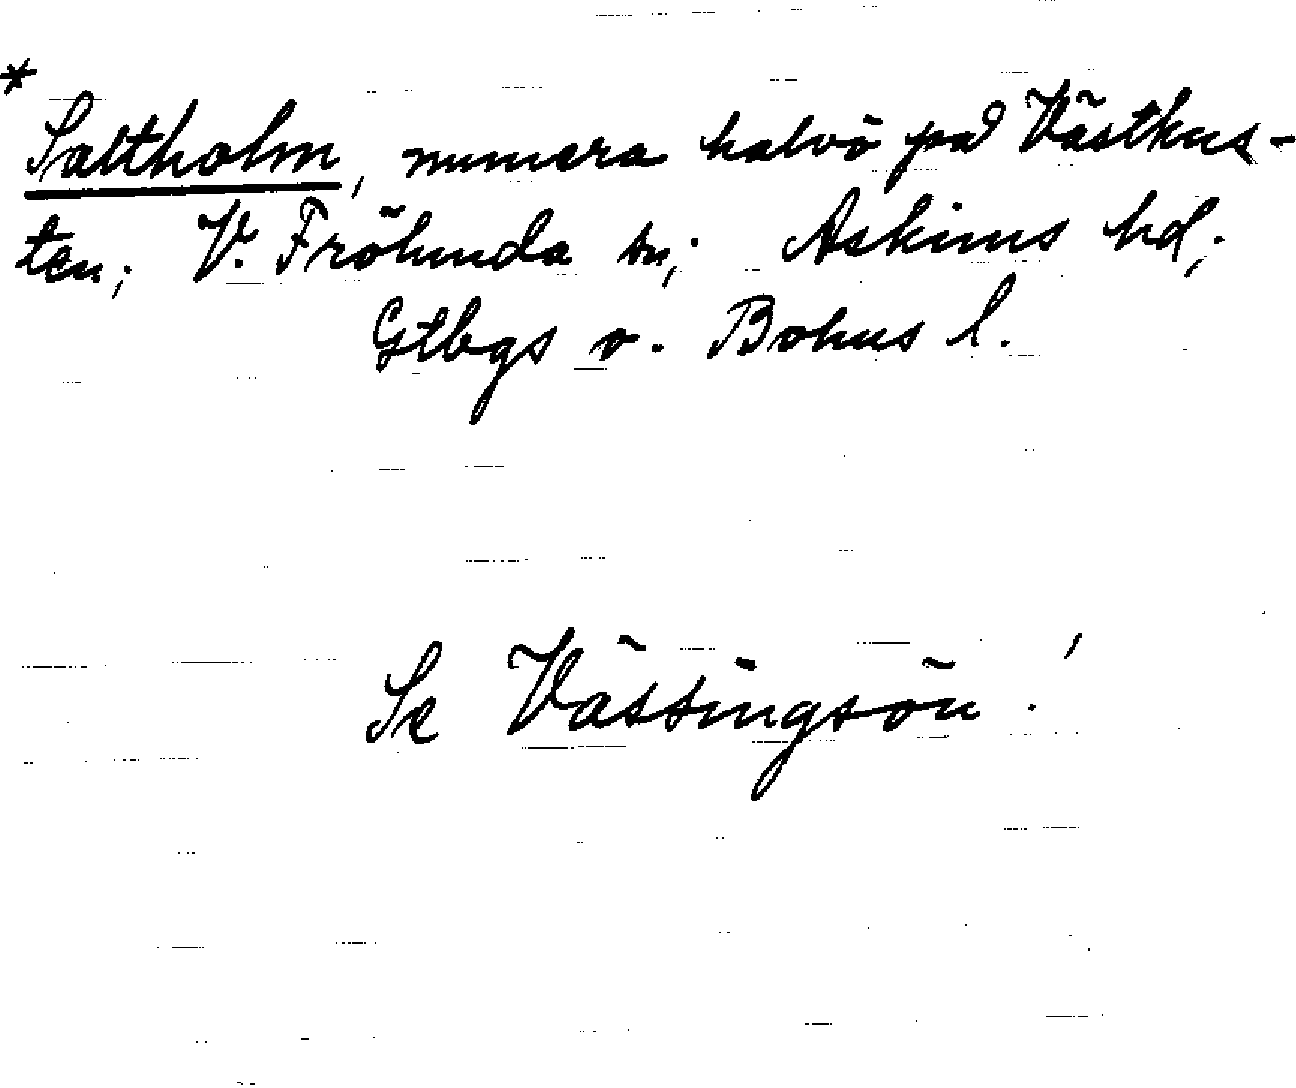 *
Saltholm, numera halvö på Västkus-
ten; V. Frölunda sn; Askims hd;
Gtbgs o. Bohus l.
Se Vässingsön!